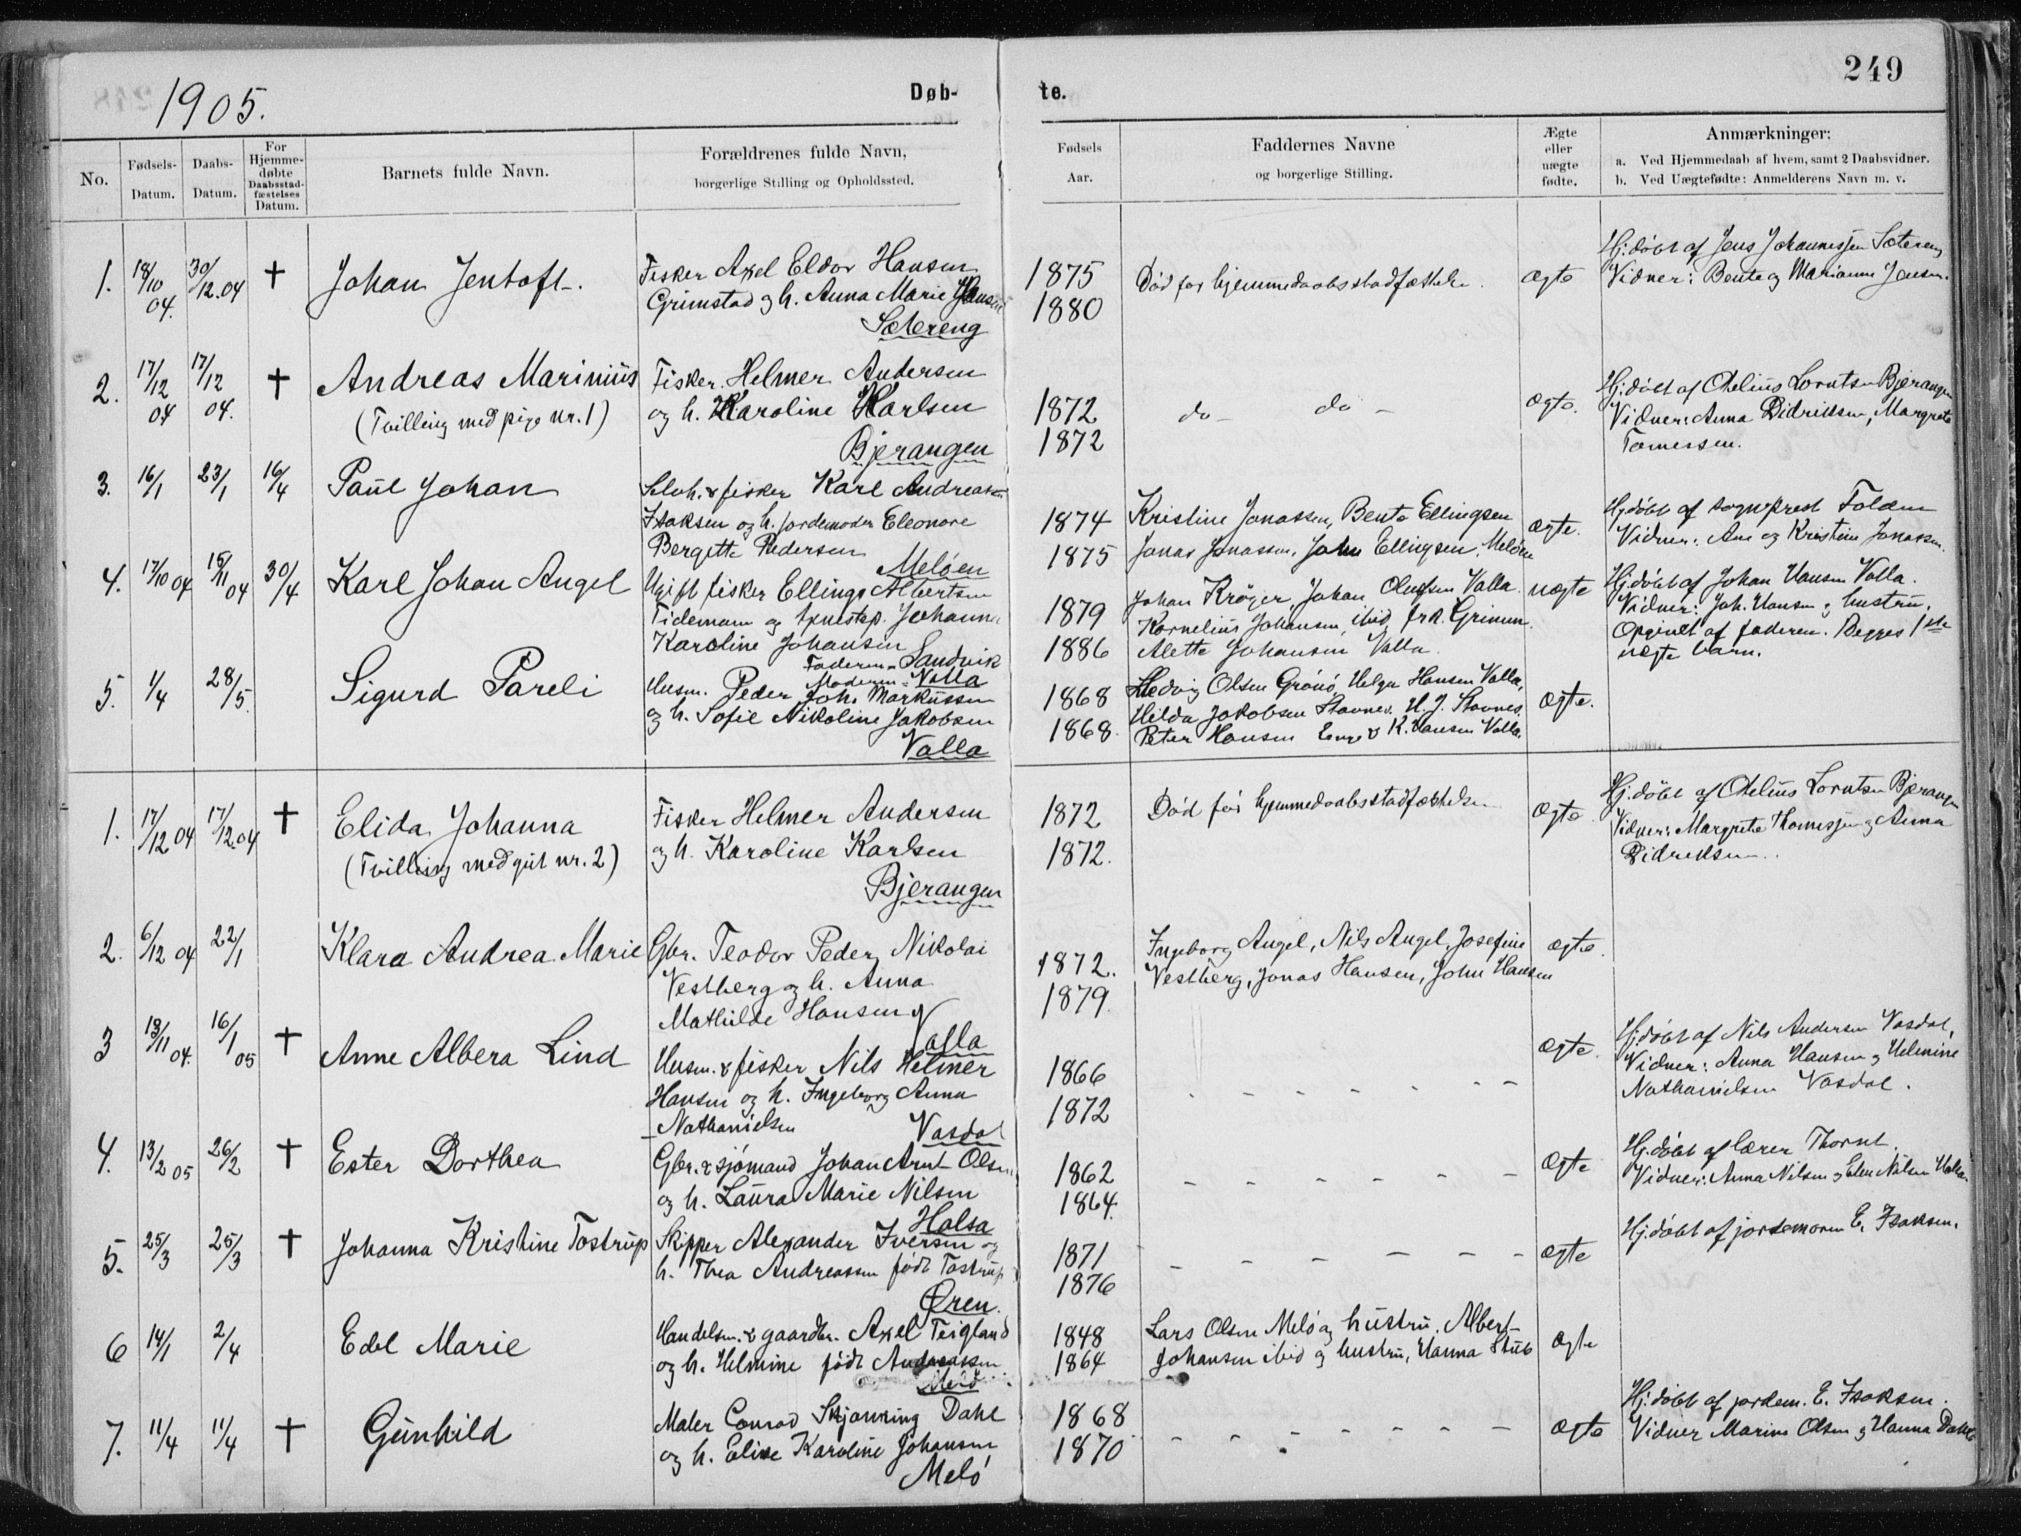 249
1905.
Døb- te.
No.
Fødsels-
Datum.
Daabs-
Datum.
For
Hjemme-
døbte
Daabsstad-
fæstelses
Datum.
Barnets fulde Navn.
Forældrenes fulde Navn,
borgerlige Stilling og Opholdssted.
Fødsels
Aar.
Faddernes Navne
og borgerlige Stilling.
Ægte
eller
uægte
fødte.
Anmærkninger:
a. Ved Hjemmedaab af hvem, samt 2 Daabsvidner.
b. Ved Uægtefødte: Anmelderens Navn m. v.
1. 18/10 04. 30/12.04 † Johan Jentoft.
Fisker Axel Eldor Hansen
Grimstad og h. Anna Marie Hansen
Sætereng
1875
1880
Død før hjemmedaabsstadfæstelse.
ægte
Hj.døbt af Jens Johannessen Sætereng
Vidner: Bente og Marianne Jensen.
2. 17/12 04 17/12 04. † Andreas Marinius
(Tvilling med pige nr. 1)
Fisker Helmer Andersen
og h. Karoline Karlsen
Bjerangen
1872
1872
do - do -
ægte.
Hj.døbt af Otelius Lorntsen Bjerangen
Vidner: Anna Didriksen, Margrete
Tomessen.
3. 16/1 23/1 16/4 Paul Johan
Selvh. & fisker Karl Andreas
Isaksen og h. jordemoder Eleonore
Bergitte Pedersen
Meløen
1874
1875
Kristine Jonassen, Bente Ellingsen
Jonas Jonassen, John Ellingsen, Meløen
ægte.
Hj.døbt af sogneprest Folden
Vidner: Ane og Kristine Jonassen.
4. 17/10 04 15/11 04 30/4 Karl Johan Angel
Ugift fisker Ellings Albertsen
Tidemann og tjenestep. Johanna
Karoline Johansen
Faderen - Sandvik
Moderen - Valla
1879
1886
Johan Krøger, Johan Olufsen Valla
Kornelius Johansen, ibid, frk. Grimm.
Alette Johansen Valla.
uægte
Hj.døbt af Johan Hansen Valla.
Vidner: Joh. Hansen og hustru.
Opgivet af faderen. Begges 1ste
uægte barn.
5. 1/4 28/5. Sigurd Pareli
Husm. Peder Joh. Markussen
og h. Sofie Nikoline Jakobsen
Valla
1868
1868.
Hedvig Olsen Grønø, Helga Hansen Valla,
Hilda Jakobsen Stavnes. H. J. Stavnes.
Peter Hansen Enge & K. Hansen Valla.
ægte.
1. 17/12 04 17/12.04 † Elida Johanna
(Tvilling med gut nr. 2)
Fisker Helmer Andersen
og h. Karoline Karlsen
Bjerangen
1872
1872.
Død før hjemmedaabsstadfæstelsen
ægte
Hj.døbt af Otelius Lorntsen Bjerangen
Vidner: Margrete Thomessen og Anna
Didriksen.
2. 6/12 04 22/1 Klara Andrea Marie
Gbr. Teodor Peder Nikolai
Vestberg og h. Anna
Mathilde Hansen
Valla
1872.
1879.
Ingeborg Angel, Nils Angel, Josefine
Vestberg, Jonas Hansen, John Hansen
ægte.
3 13/11 04. 16/1 05 † Anne Albera Lind
Husm. & fisker Nils Helmer
Hansen og h. Ingeborg Anna
Nathanielsen
Vasdal
1866
1872
- - - - - -
ægte.
Hj.døbt af Nils Andersen Vasdal,
Vidner: Anna Hansen og Helmine
Nathanielsen Vasdal.
4. 13/2 05 26/2 † Ester Dorthea
Gbr. & sjømand Johan Arnt Olsen
og h. Laura Marie Nilsen
Halsa
1862
1864.
- - - - - -
ægte
Hj.døbt af lærer Thornt.
Vidner: Anna Nilsen og Elen Nilsen Halsa
5. 25/3 25/3 † Johanna Kristine Tostrup
Skipper Alexander Iversen og
h. Thea Andreassen født Tostrup
Øren.
1871
1876
- - - - - -
ægte
Hj.døbt af jordemoren E. Isaksen.
6 14/1 2/4 Edel Marie
Handelsm. & gaardbr. Axel Teigland
og h. Helmine født Andreassen
Melø
1848
1864
Lars Olsen Melø og hustru. Albert
Johansen ibid og hustru, Hanna Stub
ægte
7. 11/4 11/4 † Gunhild
Maler Conrad Skjanning Dahl
og h. Elise Karoline Johansen
Melø
1868
1870
- - - - - - -
ægte
Hj.døbt af jordem. E. Isaksen.
Vidner Marine Olsen og Hanna Dahl